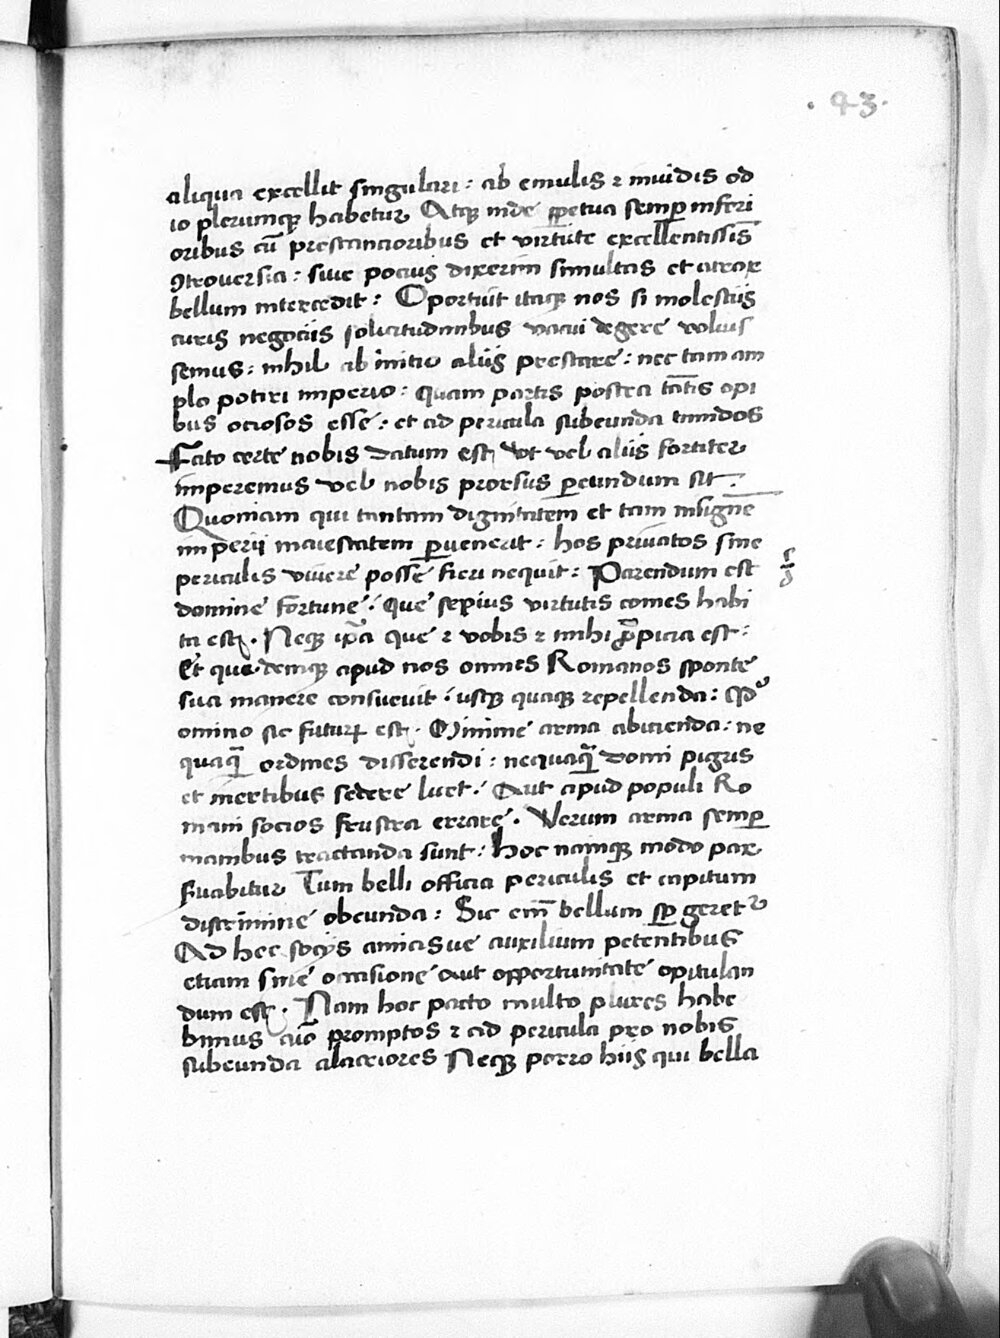 . 43.
aliqua excellit singulari : ab emulis ⁊ inuidis od
io plerumqꝫ habetur Atqꝫ inde ꝑpetua semꝑ inferi
oribus cū prestancioribus et virtute excellentissīs
ꝯtrouersia : siue pocius dixerim simultas et atrox
bellum intercedit : Oportuit itaqꝫ nos si molestiis
curis negociis solicitudinibus vacui degere voluis
semus : nihil ab initio aliis prestare : nec tam am
plo potiri imperio : quam partis postea tātis opi
bus ociosos esse : et ad pericula subeunda timidos
Fato certe nobis datum est vt vel aliis fortiter
imperemus vel nobis prorsus ꝑeundum sit :
Quoniam qui tantam dignitatem et tam insignē
imperii maiestatem ꝑuenerit : hos priuatos sine
periculis viuere posse fieri nequit : Parendum est
domine fortune : que sepius virtutis comes habi
ta est . Neqꝫ ip̄a que ⁊ vobis ⁊ mihi ꝓpicia est :
Et que deniqꝫ apud nos omnes Romanos sponte
sua manere consueuit : usqꝫ quaqꝫ repellenda : Qd'
omino sic futurꝝ est . Minime arma abicienda : ne
quaqꝫ̄ ordines disserendi : nequaqꝫ̄ domi pigris
et inertibus sedere licet : Aut apud populi Ro
mani socios frustra errare . Verum arma semꝑ
manibus tractanda sunt : hoc namqꝫ modo pax
suabitur Tum belli officia periculis et capitum
discrimine obeunda : Sic em̄ bellum sꝑ geretur
Ad hec sociis amicisue auxilium petentibus
etiam sine occasione aut opportunitate opitulan
dum est . Nam hoc pacto multo plures habe
bimus aīo promptos ⁊ ad pericula pro nobis
subeunda alacriores Neqꝫ porro hiis qui bella